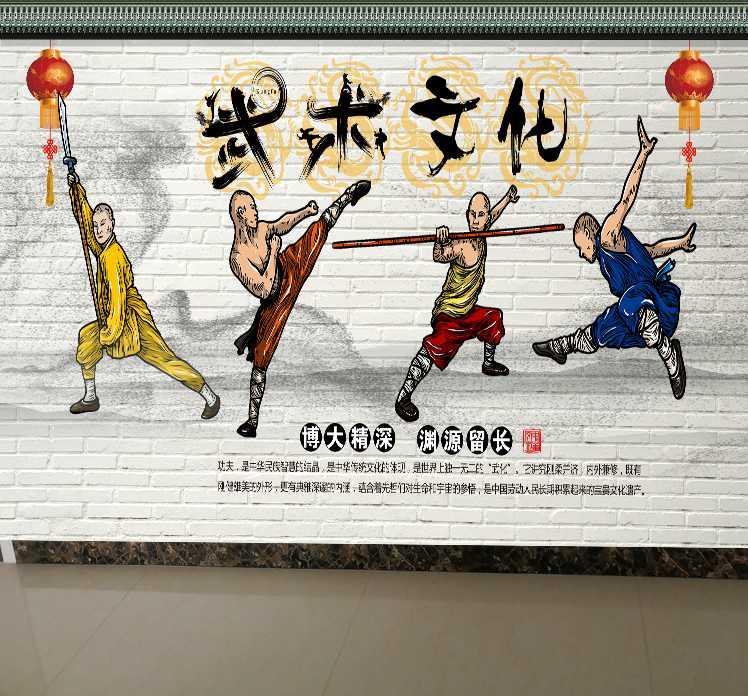 武术文化
Gongfu
博大精深 渊源留长
功夫，是中华民族智慧的结晶，是中华传统文化的体现，是世界上独一无二的“武化”。它讲究刚柔并济，内外兼修，既有
刚健雄美的外形，更有典雅深邃的内涵，蕴含着先哲们对生命和宇宙的参悟，是中国劳动人民长期积累起来的宝贵文化遗产。